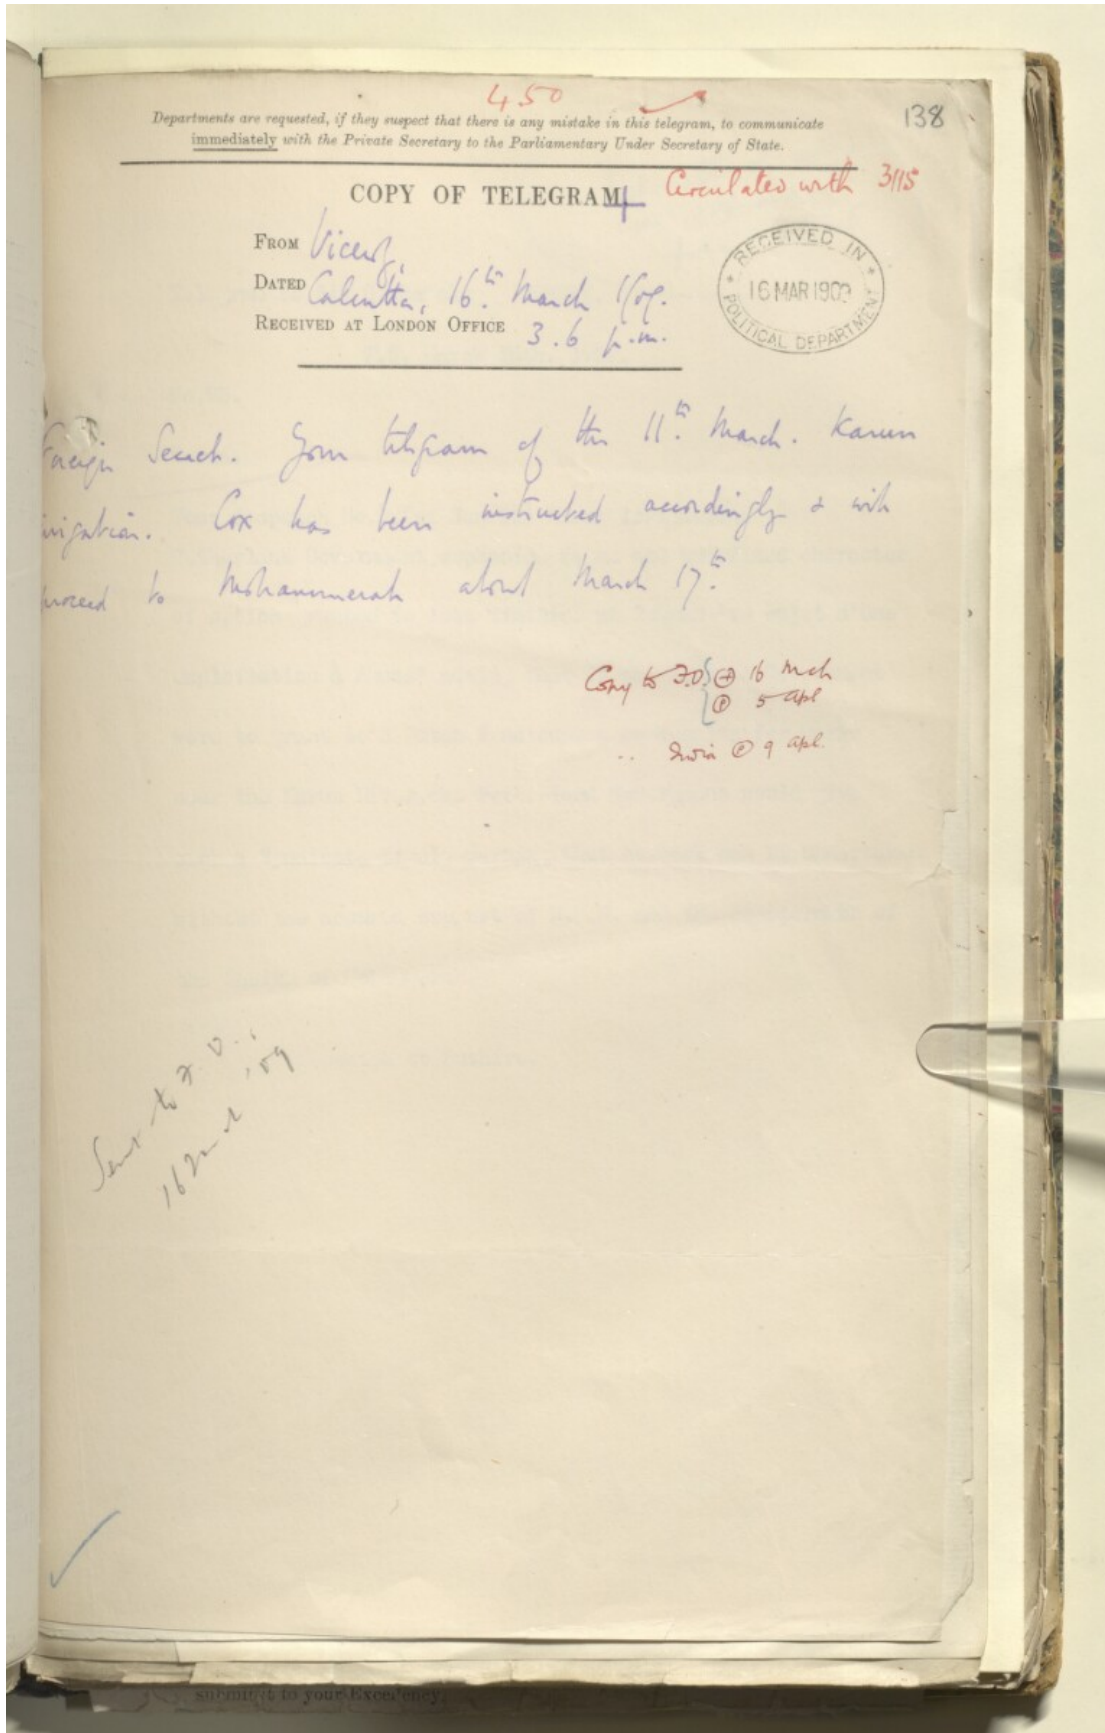 450
138
Departments are requested, if they suspect that there is any mistake in this telegram, to communicate
immediately with the Private Secretary to the Parliamentary Under Secretary of State.
Circulated with 3115
COPY OF TELEGRAM
FROM Viceroy,
DATED Calcutta, 16th March 1909.
RECEIVED AT LONDON OFFICE 3.6 p.m.
RECEIVED IN
16 MAR 1909
POLITICAL DEPARTMENT
Foreign Secret. Your telegram of the 11th March. Karun
irrigation. Cox has been instructed accordingly & will
proceed to Mohammerah about March 17th.
Copy to F.O. 16 Mch
5 Apl
" India 9 Apl.
Sent to F.O.
16 '09
submit to your Excellency,